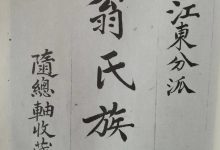 江東分派
翁氏族
隨總軸收